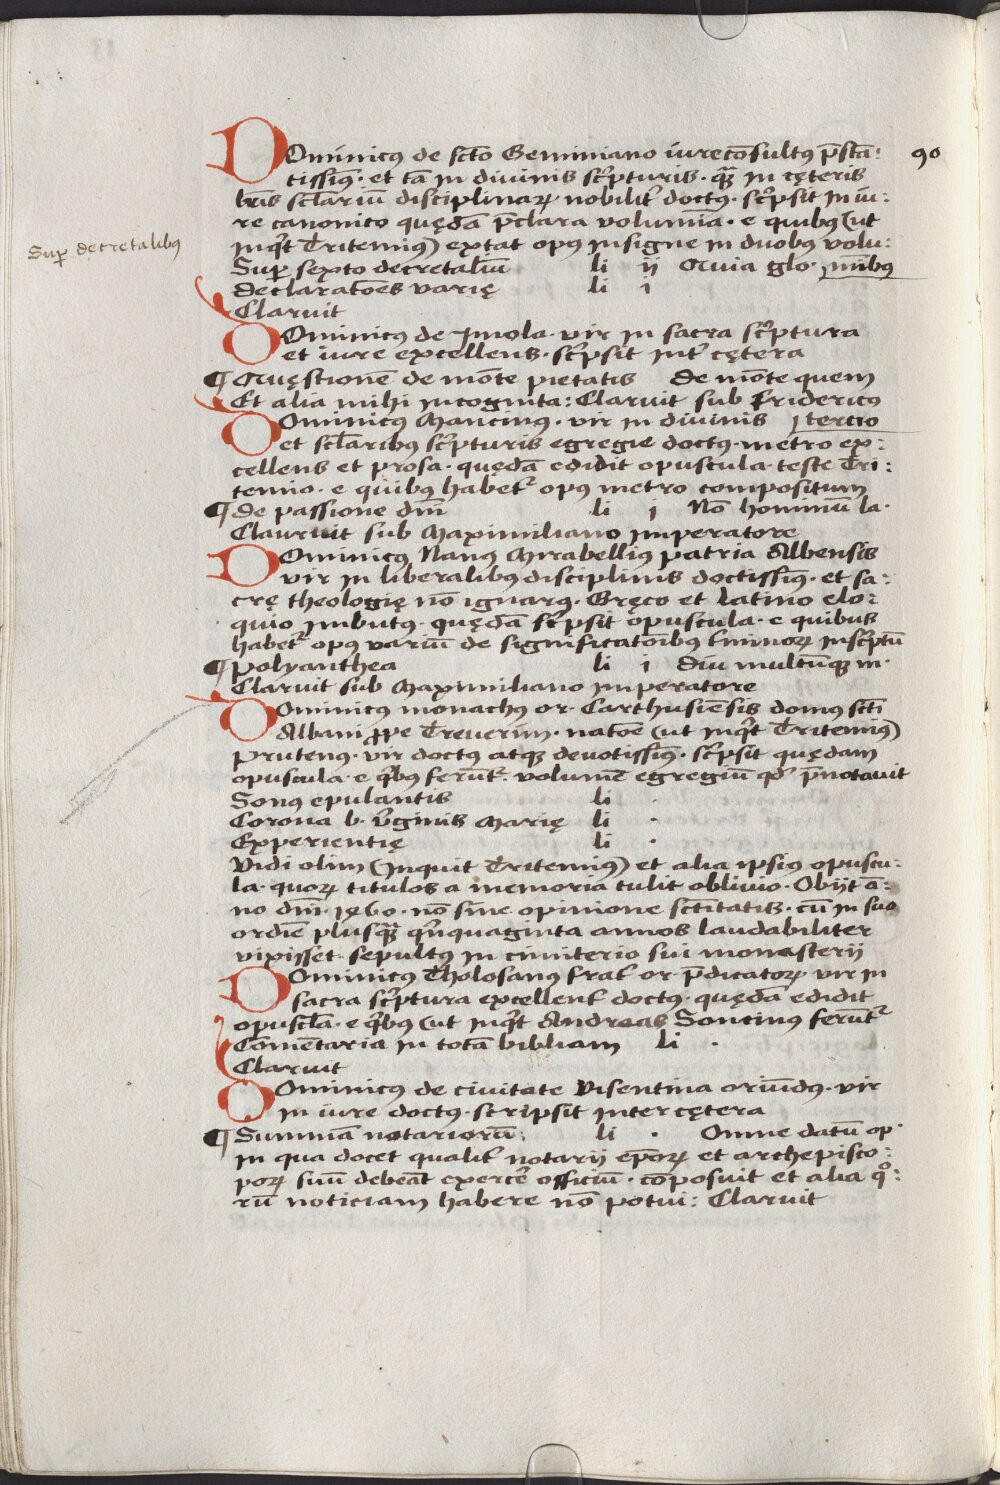 90
DOminicꝰ de scto Geminiano iurecōsultꝰ p̄stā:
tissimꝰ· et tā in diuinis sc̓pturis· qͣꝫ in cęteris
lr̄is sclariū disciplinarꝝ nobilit̓ doctꝰ· sc̓psit in iu:
re canonico quędā p̄clara volumina· e quibꝰ (ut
inqͥt Tritemiꝰ) extat opꝰ insigne in duobꝰ volu:
minibꝰ
Suꝑ decretalibꝰ
Suꝑ sexto decretaliū li ij Quia glo·
declaratōes varię li i
Claruit
DOminicꝰ de Jmola· vir in sacra sc̓ptura
et iure excellens· sc̓psit int̓ cętera
¶ Quęstionē de mōte pietatis De mōte quem
Et alia mihi incognita: Claruit sub Fridericꝰ
tercio
DOminicꝰ Mancinꝰ· vir in diuinis
et sclaribꝰ sc̓pturis egregie doctꝰ· metro ex:
cellens et prosa· quędā edidit opuscula· teste Tri:
temio· e quibꝰ habet̓ opꝰ metro compositum
¶ De passione dn̄i li i Nō hominū la·
Clauruit sub Maximiliano imperatore
DOminicꝰ Nanꝰ Mirabelliꝰ patria Albensis
vir in liberalibꝰ disciplinis doctissimꝰ· et sa:
crę theologię nō ignarꝰ· Gręco et latino elo:
quio imbutꝰ· quędā sc̓psit opuscula· e quibus
habet̓ opꝰ variū de significatōibꝰ t̄minorꝝ insc̓ptū
¶ Polyanthea li i Diu multūqꝫ m·
Claruit sub Maximiliano imperatore
DOminicꝰ monachꝰ or· Carthusiēsis domus scti
Albani ꝓpe Treuerim· natōe (ut inqͥt Tritemiꝰ)
prutenꝰ· vir doctꝰ atqꝫ deuotissimꝰ· sc̓psit quędam
opuscula· e qͥbꝰ ferūt̓ volumē egregiū qd̓ p̄notauit
Sonꝰ epulantis li ·
Corona b· v̓ginis Marię li ·
Experientię li ·
Vidi olim (inquit Tritemiꝰ) et alia ipsiꝰ opuscu:
la· quorꝝ titulos a memoria tulit obliuio· Obijt ā:
no dn̄i· 1460· nō sine opinione sctītatis· cū in suo
ordiē plusqͣꝫ qͥnquaginta annos laudabiliter
vixisset· sepultꝰ in cimiterio sui monasterij
DOminicꝰ Tholosanꝰ frat̓ or· p̄dicatorꝝ vir in
sacra sc̓ptura excellent̓ doctꝰ· quędā edidit
opuscla· e qͥbꝰ (ut inqͥt Andreas Soncinꝰ ferūt̓
Comētaria in totā bibliam li ·
Claruit
DOminicꝰ de ciuitate Visentina oriūdꝰ· vir
in iure doctꝰ· scripsit inter cętera
¶ Summā notariorū: li · Omne datū op·
in qua docet qualit̓ notarij ep̄orꝝ et archepisco:
porꝝ suū debeāt exercē officiū· cōposuit et alia qͦ:
rū noticiam habere nō potui: Claruit